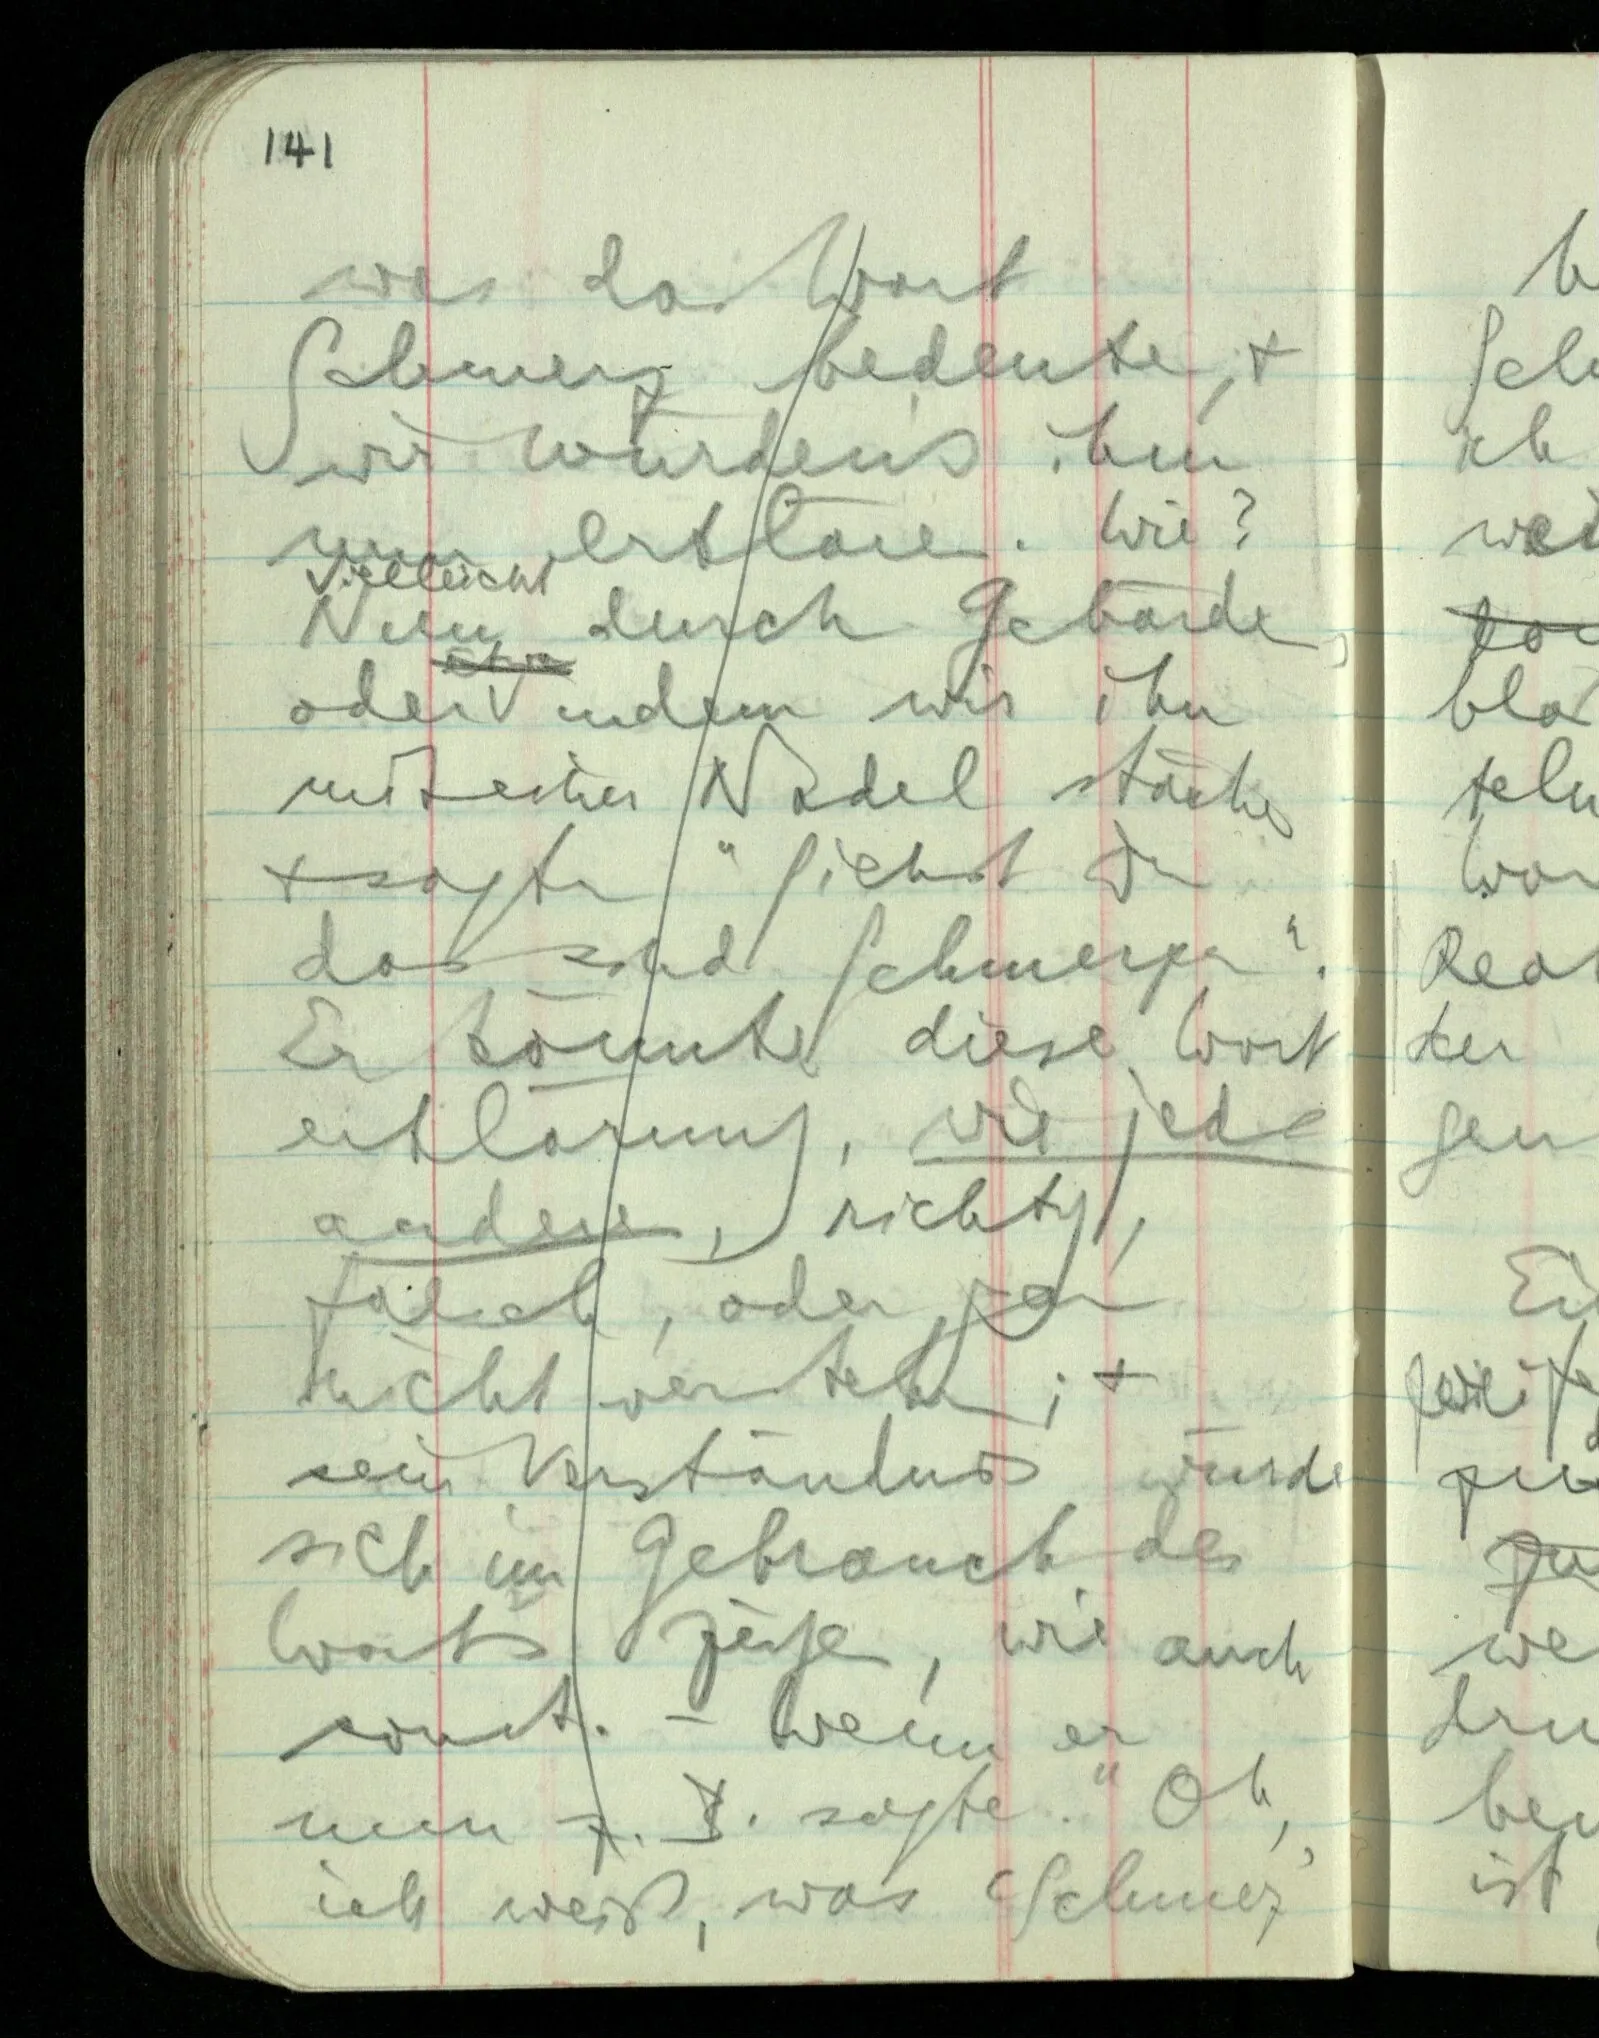 141
was das Wort
Schmerz bedeute, +
wir würden's ihm
nun erklären. Wie?
Vielleicht
Nun durch Gebärde,
etwa
oder indem wir ihn
mit einer Nadel stächen
+ sagten "Siehst Du
das sind Schmerzen".
Er könnte diese Wort
erklärung, wie jede
andere, richtig,
falsch, oder gar
nicht verstehen; +
sein Verständnis würde
sich im Gebrauch des
Worts zeigen, wie auch
sonst. – Wenn er
nun z. B. sagte: "Oh,
ich weiß, was 'Schmerz'
Schm
ich
bla
Wor
der
ist